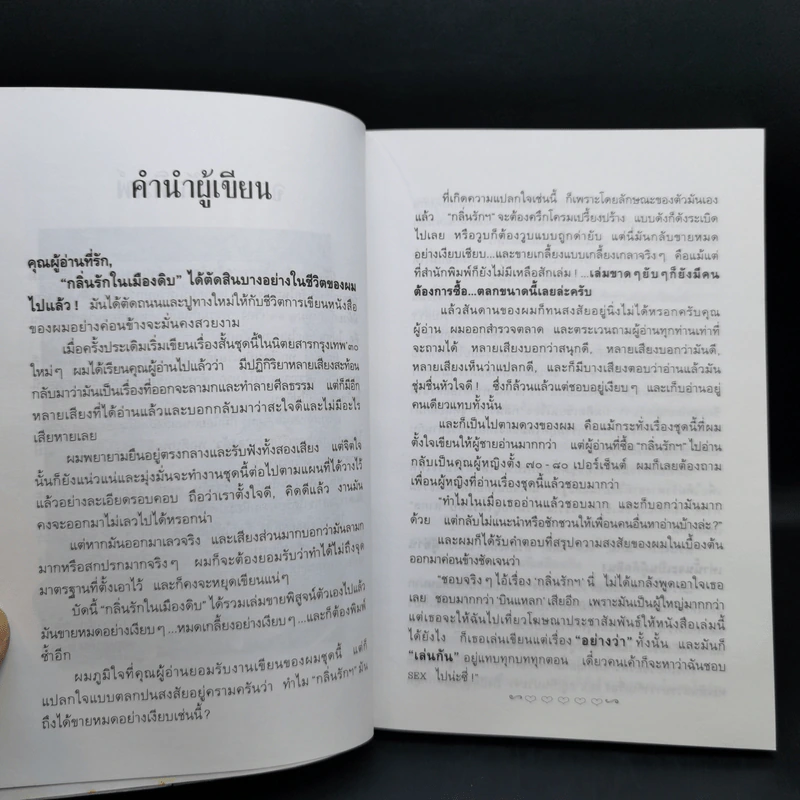 คำนำผู้เขียน
คุณผู้อ่านที่รัก,
"กลิ่นรักในเมืองดิบ" ได้ตัดสินบางอย่างในชีวิตของผม
ไปแล้ว! มันได้ตัดถนนและปูทางใหม่ให้กับชีวิตการเขียนหนังสือ
ของผมอย่างค่อนข้างจะมั่นคงสวยงาม
เมื่อครั้งประเดิมเริ่มเขียนเรื่องสั้นชุดนี้ในนิตยสารกรุงเทพ'๓๐
ใหม่ๆ ผมได้เรียนคุณผู้อ่านไปแล้วว่า มีปฏิกิริยาหลายเสียงสะท้อน
กลับมาว่ามันเป็นเรื่องที่ออกจะลามกและทำลายศีลธรรม แต่ก็มีอีก
หลายเสียงที่ได้อ่านแล้วและบอกกลับมาว่าสะใจดีและไม่มีอะไร
เสียหายเลย
ผมพยายามยืนอยู่ตรงกลางและรับฟังทั้งสองเสียง แต่จิตใจ
นั้นก็ยังแน่วแน่และมุ่งมั่นจะทำงานชุดนี้ต่อไปตามแผนที่ได้วางไว้
แล้วอย่างละเอียดรอบคอบ ถือว่าเราตั้งใจดี, คิดดีแล้ว งานมัน
คงจะออกมาไม่เลวไปได้หรอกน่า
แต่หากมันออกมาเลวจริง และเสียงส่วนมากบอกว่ามันลามก
มากหรือสกปรกมากจริงๆ ผมก็จะต้องยอมรับว่าทำได้ไม่ถึงจุด
มาตรฐานที่ตั้งเอาไว้ และก็คงจะหยุดเขียนแน่ๆ
บัดนี้ "กลิ่นรักในเมืองดิบ" ได้รวมเล่มขายพิสูจน์ตัวเองไปแล้ว
มันขายหมดอย่างเงียบๆ...หมดเกลี้ยงอย่างเงียบๆ...และก็ต้องพิมพ์
ซ้ำอีก
ผมภูมิใจที่คุณผู้อ่านยอมรับงานเขียนของผมชุดนี้ แต่ก็
แปลกใจแบบตลกปนสงสัยอยู่ครามครันว่า ทำไม "กลิ่นรักฯ" มัน
ถึงได้ขายหมดอย่างเงียบเช่นนี้?
ที่เกิดความแปลกใจเช่นนี้ ก็เพราะโดยลักษณะของตัวมันเอง
แล้ว "กลิ่นรักฯ" จะต้องครึกโครมเปรี้ยงปร้าง แบบดังก็ดังระเบิด
ไปเลย หรือวูบก็ต้องวูบแบบถูกด่ายับ แต่นี่มันกลับขายหมด
อย่างเงียบเชียบ...และขายเกลี้ยงแบบเกลี้ยงเกลาจริงๆ คือแม้แต่
ที่สำนักพิมพ์ก็ยังไม่มีเหลือสักเล่ม!...เล่มขาดๆยับๆก็ยังมีคน
ต้องการซื้อ...ตลกขนาดนี้เลยล่ะครับ
แล้วสันดานของผมก็ทนสงสัยอยู่นิ่งไม่ได้หรอกครับคุณ
ผู้อ่าน ผมออกสำรวจตลาด และตระเวนถามผู้อ่านทุกท่านเท่าที่
จะถามได้ หลายเสียงบอกว่าสนุกดี, หลายเสียงบอกว่ามันดี,
หลายเสียงเห็นว่าแปลกดี, และก็มีบางเสียงตอบว่าอ่านแล้วมัน
ชุ่มชื่นหัวใจดี! ซึ่งก็ล้วนแล้วแต่ชอบอยู่เงียบๆ และเก็บอ่านอยู่
คนเดียวแทบทั้งนั้น
และก็เป็นไปตามดวงของผม คือแม้กระทั่งเรื่องชุดนี้ที่ผม
ตั้งใจเขียนให้ผู้ชายอ่านมากกว่า แต่ผู้อ่านที่ซื้อ "กลิ่นรักฯ" ไปอ่าน
กลับเป็นคุณผู้หญิงตั้ง ๗๐-๘๐ เปอร์เซ็นต์ ผมก็เลยต้องถาม
เพื่อนผู้หญิงที่อ่านเรื่องชุดนี้แล้วชอบมากว่า
"ทำไมในเมื่อเธออ่านแล้วชอบมาก และก็บอกว่ามันมาก
ด้วย แต่กลับไม่แนะนำหรือชักชวนให้เพื่อนคนอื่นหาอ่านบ้างล่ะ?"
และผมก็ได้รับคำตอบที่สรุปความสงสัยของผมในเบื้องต้น
ออกมาค่อนข้างชัดเจนว่า
"ชอบจริงๆ ไอ้เรื่อง 'กลิ่นรักฯ' นี่ ไม่ได้แกล้งพูดเอาใจเธอ
เลย ชอบมากกว่า 'บินแหลก' เสียอีก เพราะมันเป็นผู้ใหญ่มากกว่า
แต่เธอจะให้ฉันไปเที่ยวโฆษณาประชาสัมพันธ์ให้หนังสือเล่มนี้
ได้ยังไง ก็เธอเล่นเขียนแต่เรื่อง "อย่างว่า" ทั้งนั้น และมันก็
"เล่นกัน" อยู่แทบทุกบททุกตอน เดี๋ยวคนเค้าก็จะหาว่าฉันชอบ
SEX ไปน่ะซี!"